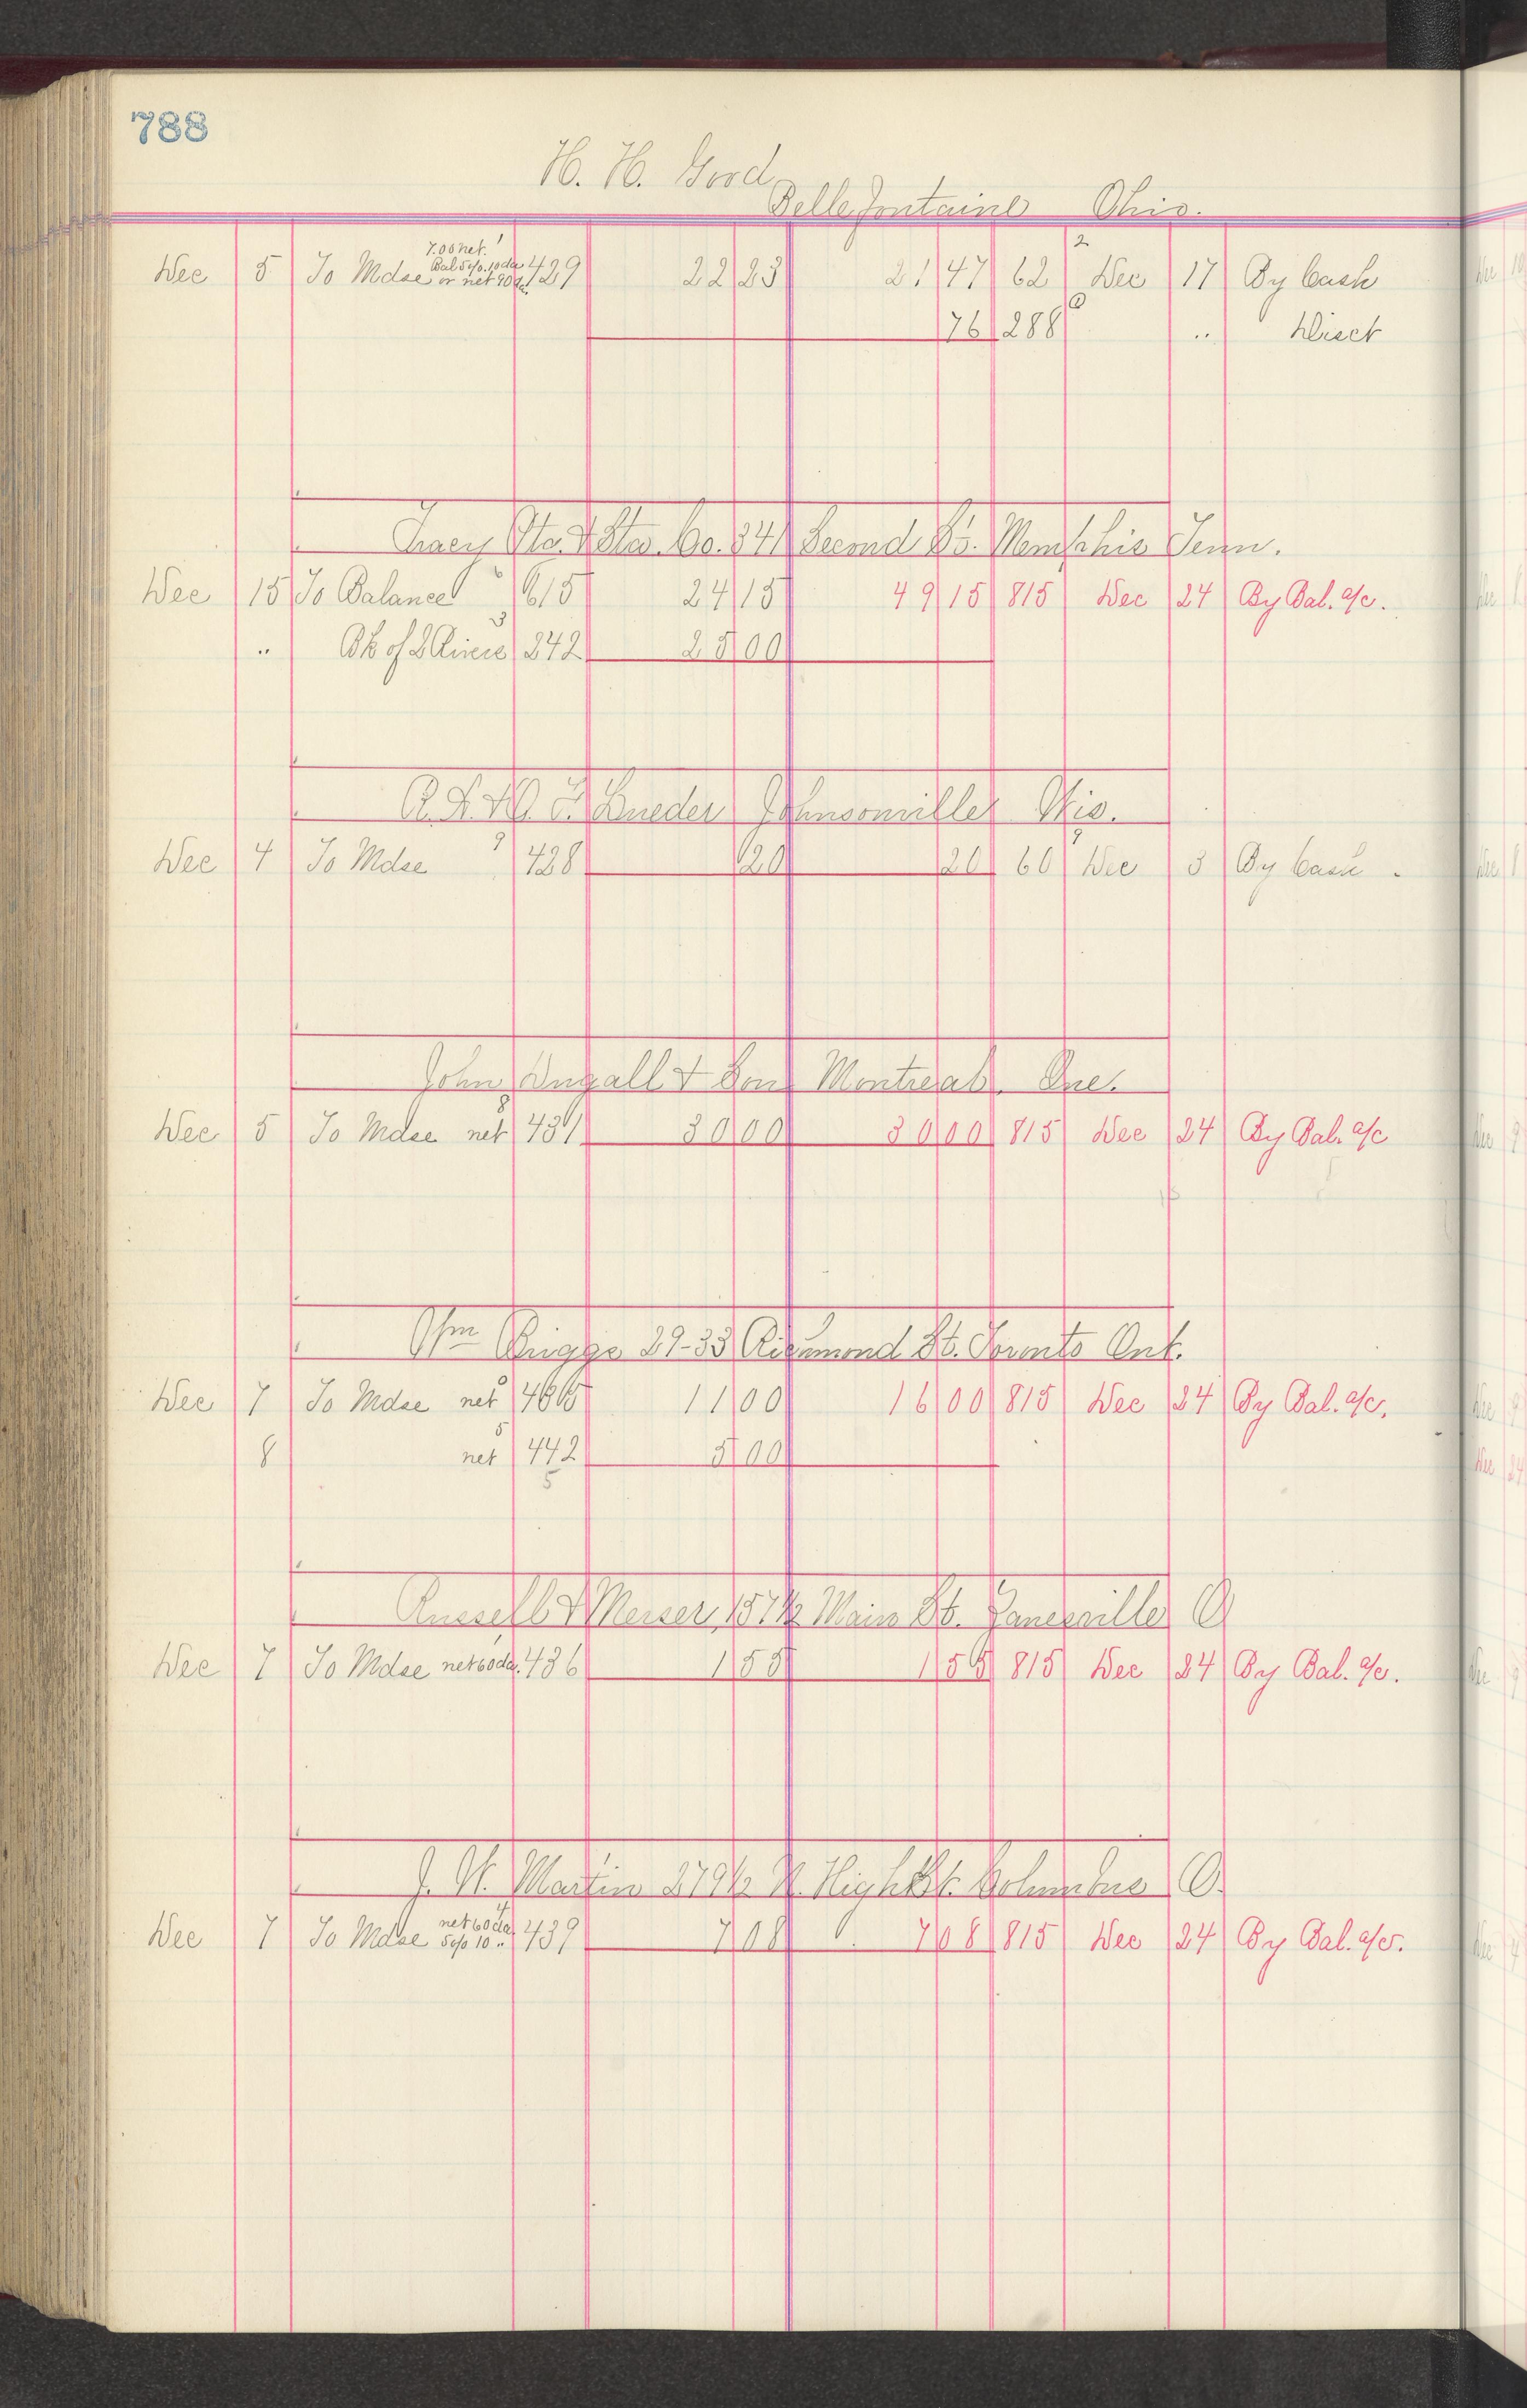 788
H. H. Good
Bellefontaine Ohio.
7.00 net. 1 2
Bal 5% 10 da
Dec 5 To Mdse or net 90 da. 429 22 23 21 47 62 Dec 17 By Cash
76 288 6 .. Disct
Tracy Pta. & Sta. Co. 341 Second St. Memphis Tenn.
Dec 15 To Balance 6 615 24 15 49 15 815 Dec 24 By Bal. a/c.
.. Bk of 2 Rivers 3 242 25 00
Johnsonville Ohio.
Dec 4 To Mdse 9 428 20 20 60 9 Dec 3 By Cash
John Dugall & Son Montreal. Que.
Dec 5 To Mdse net 8 431 30 00 30 00 815 Dec 24 By Bal. a/c
Wm Briggs 29-33 Richmond St. Toronto Ont.
Dec 7 To Mdse net 11 00 16 00 815 Dec 24 By Bal. a/c.
8 net 5 442 5 00
5
Russell & Merser, 157½ Main St. Zanesville O
Dec 7 To Mdse net 60 da. 436 1 55 1 55 815 Dec 24 By Bal. a/c.
J. W. Martin 279½ N. High St. Columbus O.
net 60 da 4
Dec 7 To Mdse 5% 10 .. 439 7 08 7 08 815 Dec 24 By Bal. a/c.